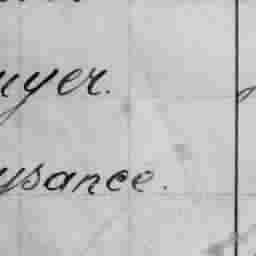 uyer.
ysance.